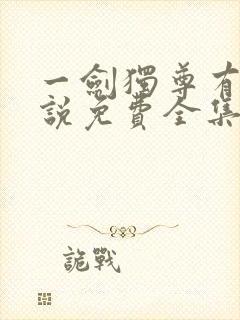 一劍獨尊有
說免費全集
詭戰